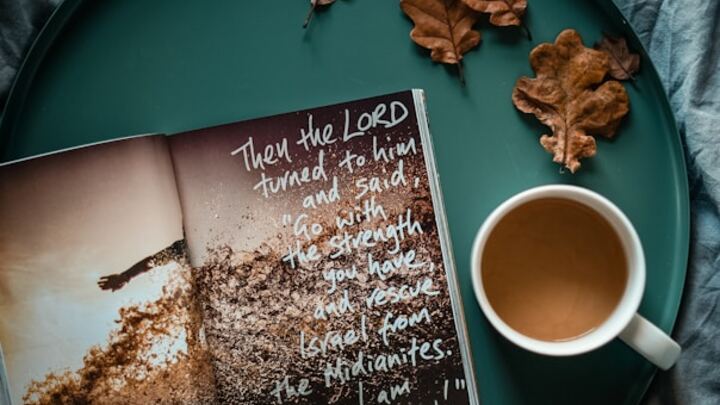 Then the LORD
turned to him
and said,
"Go with
the strength
you have,
and rescue
Israel from
the Midianites.
I am
!"